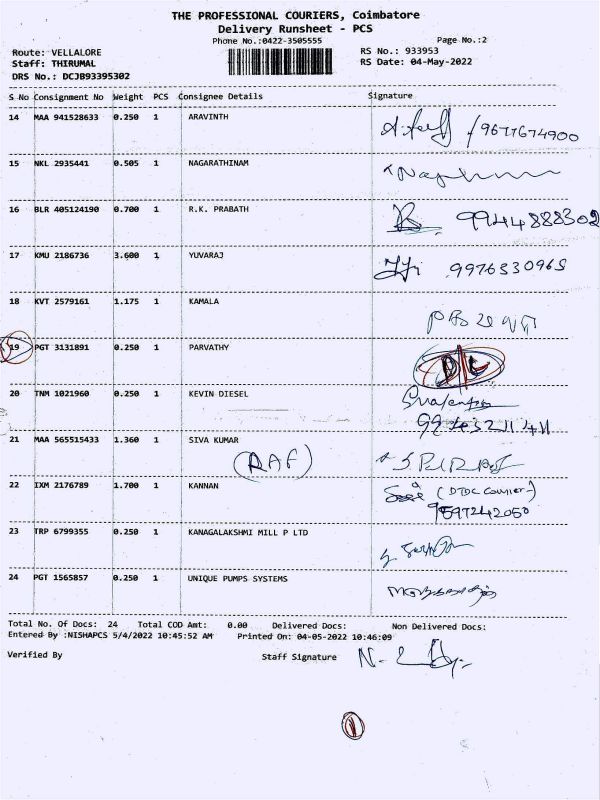 THE PROFESSIONAL COURIERS, Coimbatore
Delivery Runsheet - PCS
Phone No.:0422-3505555
Page No.:2
Route: VELLALORE
RS No.: 933953
Staff: THIRUMAL
RS Date: 04-May-2022
DRS No.: DCJB93395302
S No Consignment No Weight PCS Consignee Details Signature
14 MAA 941528633 0.250 1 ARAVINTH
15 NKL 2935441 0.505 1 NAGARATHINAM
16 BLR 405124190 0.700 1 R.K. PRABATH 9944888302
17 KMU 2186736 3.600 1 YUVARAJ 9976330965
18 KVT 2579161 1.175 1 KAMALA
19 PGT 3131891 0.250 1 PARVATHY D/L
20 TNM 1021960 0.250 1 KEVIN DIESEL
21 MAA 565515433 1.360 1 SIVA KUMAR
(RAF)
22 IXM 2176789 1.700 1 KANNAN (DTDC Courier)
9597242050
23 TRP 6799355 0.250 1 KANAGALAKSHMI MILL P LTD
24 PGT 1565857 0.250 1 UNIQUE PUMPS SYSTEMS
Total No. Of Docs: 24 Total COD Amt: 0.00 Delivered Docs: Non Delivered Docs:
Entered By :NISHAPCS 5/4/2022 10:45:52 AM Printed On: 04-05-2022 10:46:09
Verified By Staff Signature